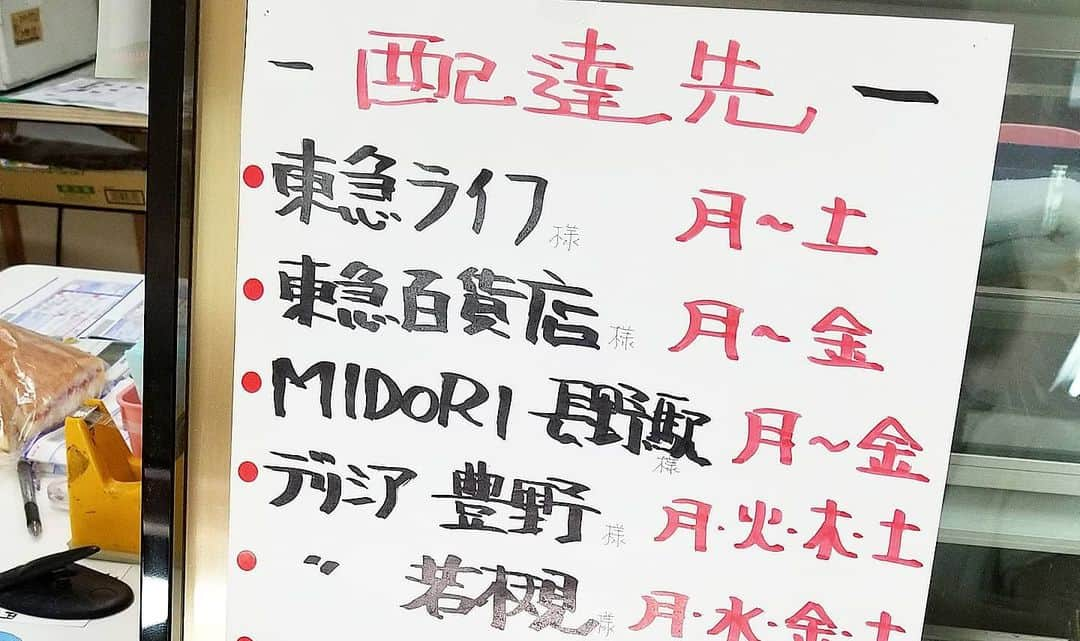 - 配達先 -
● 東急ライフ 様 月～土
● 東急百貨店 様 月～金
● MIDORI 長野駅 様 月～金
● デリシア 豊野 様 月・火・木・土
● 〃 若槻 様 月・水・金・土